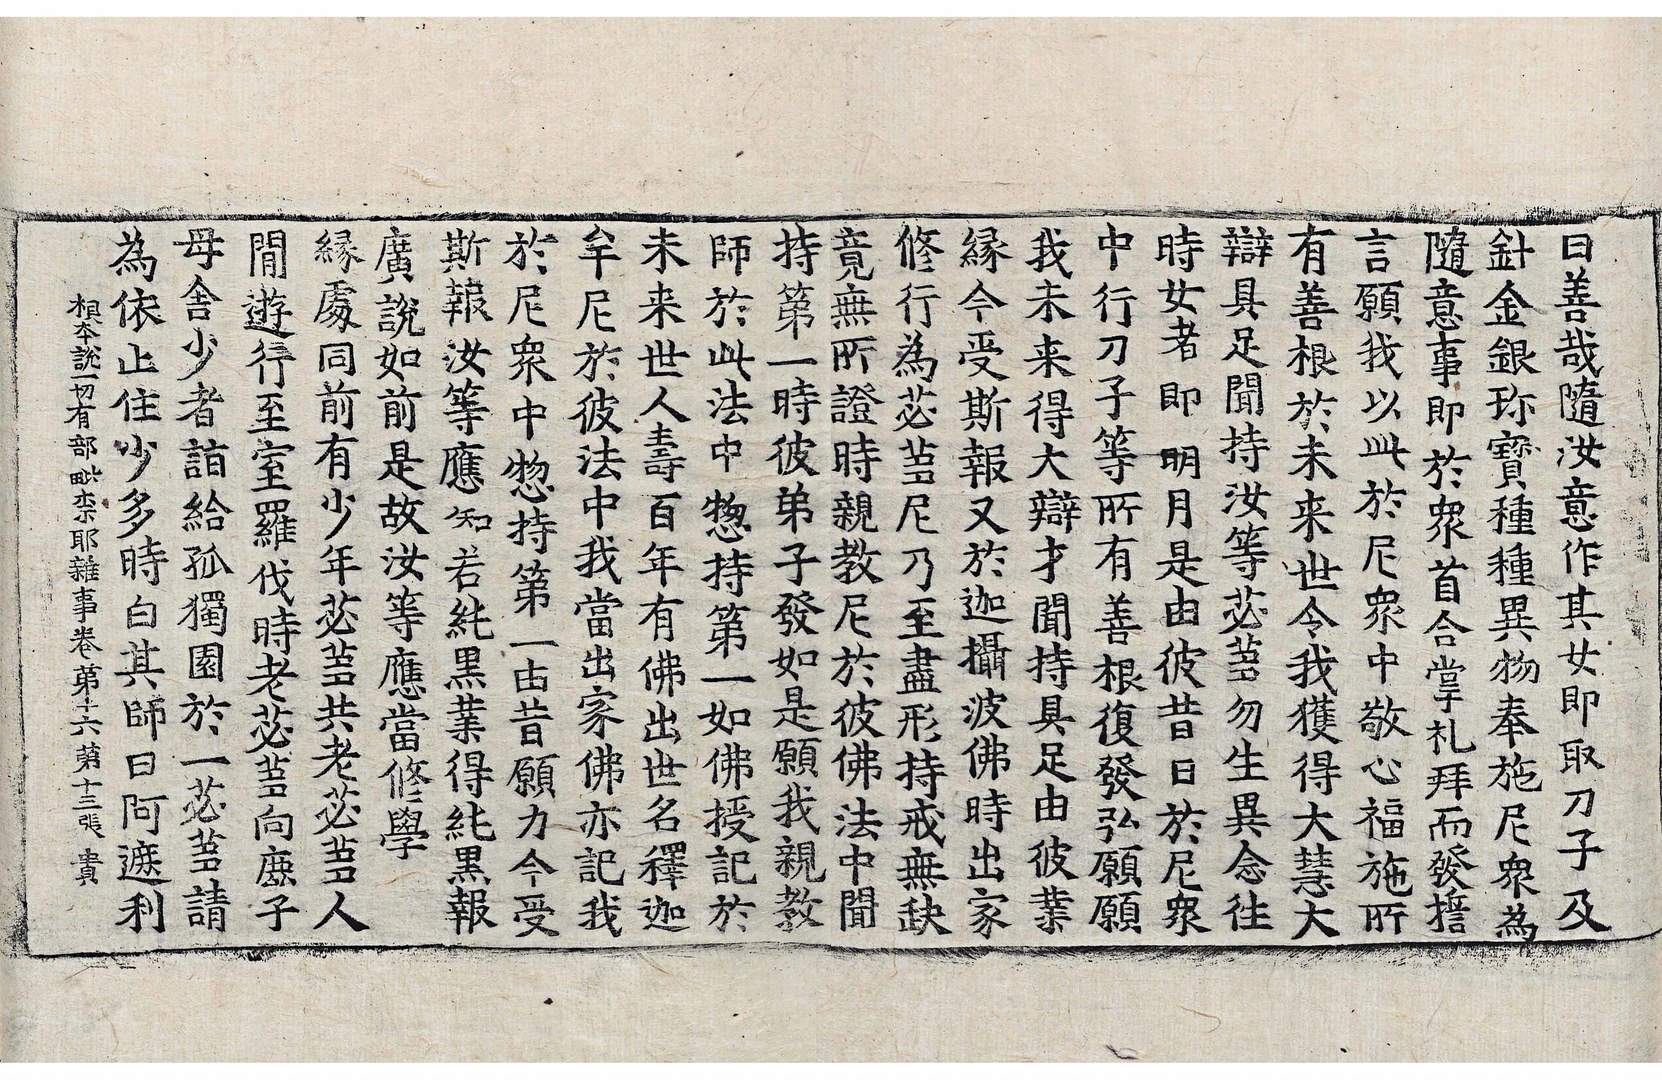 曰善哉隨汝意作其女即取刀子及
針金銀珎寶種種異物奉施尼衆為
隨意事即於衆首合掌礼拜而發擔
言願我以此於尼衆中敬心福施所
有善根於未来世令我獲得大慧大
辯具足聞持汝等苾蒭勿生異念往
時女者即明月是由彼昔日於尼衆
中行刀子等所有善根復發弘願願
我未来得大辯才聞持具足由彼業
縁今受斯報又於迦攝波佛時出家
修行為苾蒭尼乃至盡形持戒無缺
竟無所證時親教尼於彼佛法中聞
持第一時彼弟子發如是願我親教
師於此法中惣持第一如佛授記於
未来世人壽百年有佛出世名釋迦
牟尼於彼法中我當出家佛亦記我
於尼衆中惣持第一由昔願力今受
斯報汝等應知若純黒業得純黒報
廣說如前是故汝等應當修學
縁處同前有少年苾蒭共老苾蒭人
間遊行至室羅伐時老苾蒭向鹿子
母舍少者詣給孤獨園於一苾蒭請
為依止住少多時白其師曰阿遮利
根本說一切有部毗柰耶雜事卷第十六第十三張 貴